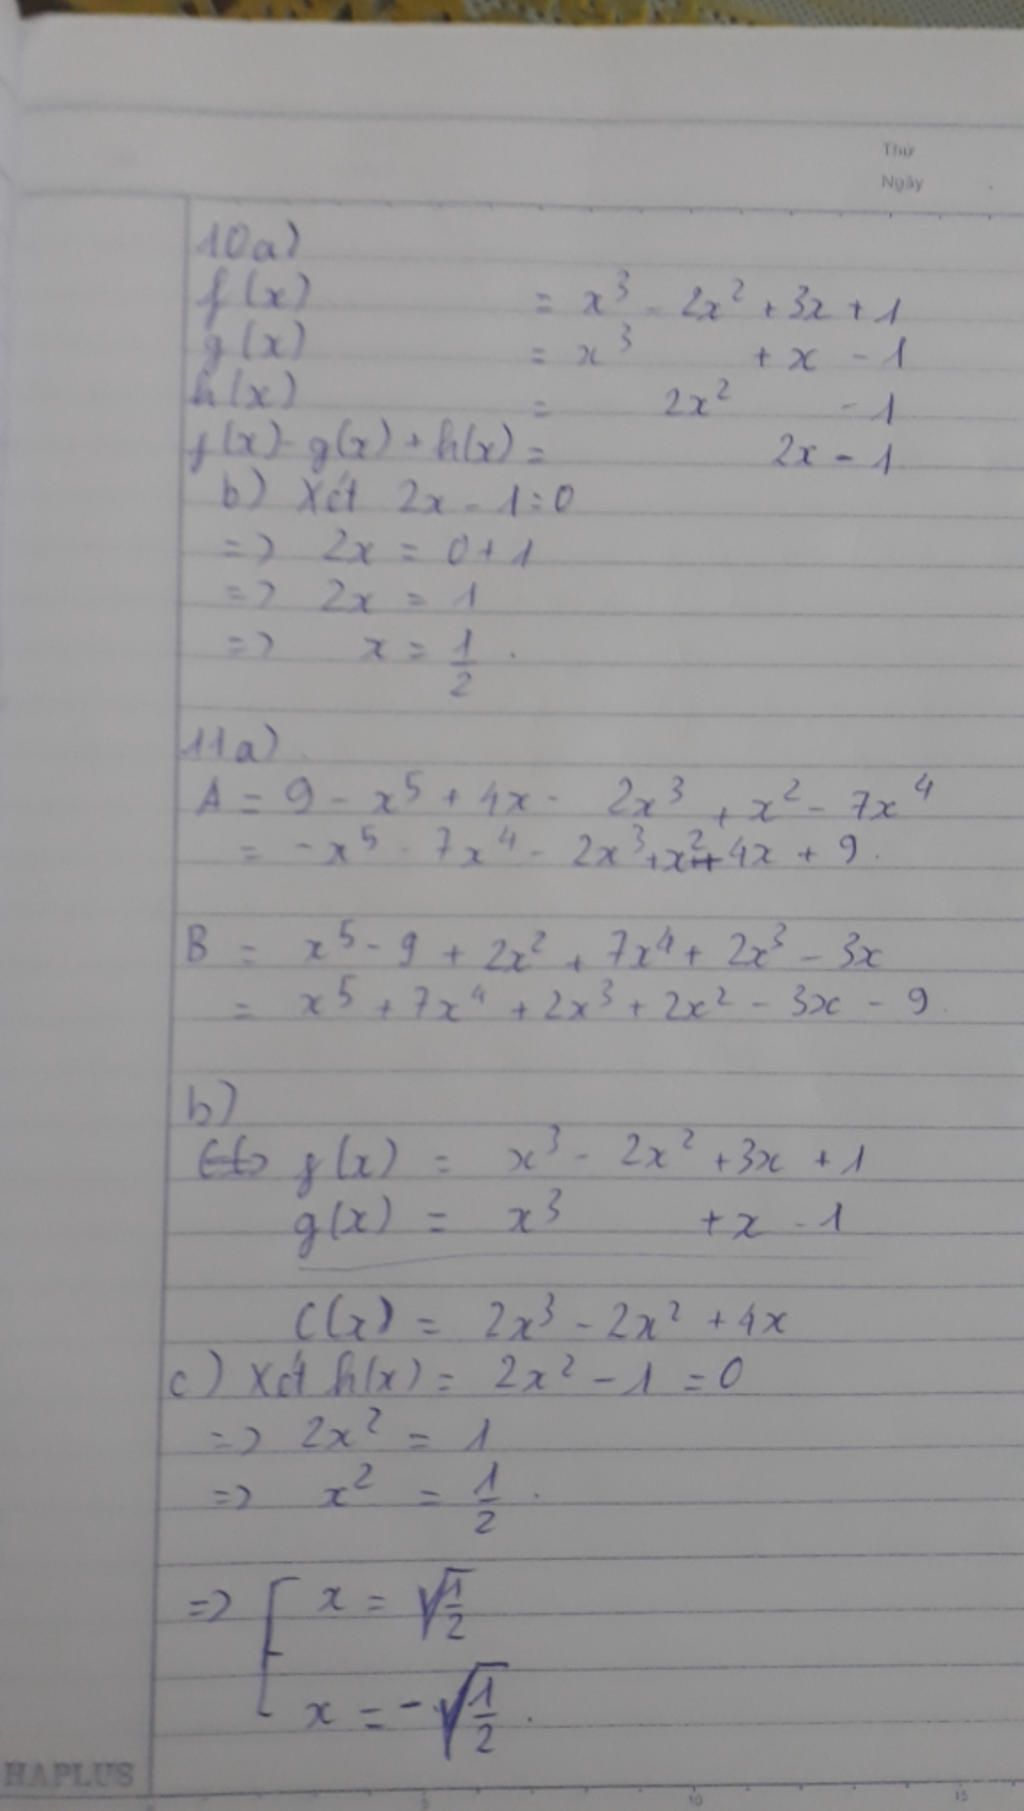 Thứ
Ngày
10a)
f(x) = x³ - 2x² + 3x + 1
g(x) = x³ + x - 1
h(x) = 2x² - 1
f(x) - g(x) + h(x) = 2x - 1
b) Xét 2x - 1 = 0
=> 2x = 0 + 1
=> 2x = 1
=> x = 1/2.
11a)
A = 9 - x⁵ + 4x - 2x³ + x² - 7x⁴
= -x⁵ - 7x⁴ - 2x³ + x² + 4x + 9.
B = x⁵ - 9 + 2x² + 7x⁴ + 2x³ - 3x
= x⁵ + 7x⁴ + 2x³ + 2x² - 3x - 9.
b)
f(x) = x³ - 2x² + 3x + 1
g(x) = x³ + x - 1
C(x) = 2x³ - 2x² + 4x
c) Xét h(x) = 2x² - 1 = 0
=> 2x² = 1
=> x² = 1/2.
=> [ x = √(1/2)
x = -√(1/2).
HAPLUS
5 10 15